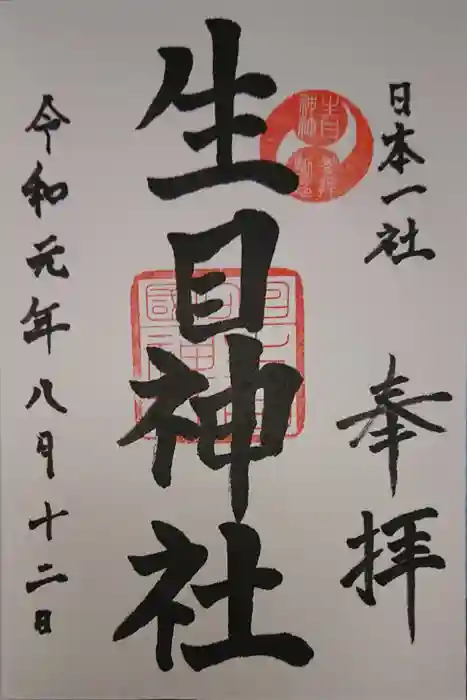 日本一社
奉拝
生目神社
令和元年八月十二日